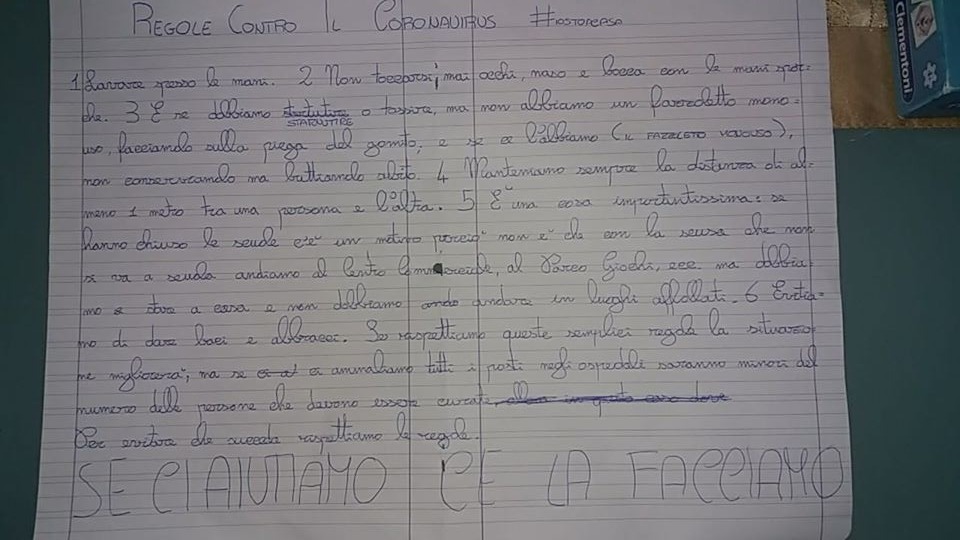 REGOLE CONTRO IL CORONAVIRUS #IOSTOACASA
Clementoni
1 Lavare spesso le mani. 2 Non toccarsi mai occhi, naso e bocca con le mani spor-
che. 3 E se dobbiamo starnutire o tossire, ma non abbiamo un fazzoletto mono-
STARNUTIRE
uso, facciamolo sulla piega del gomito, e se ce l'abbiamo (IL FAZZOLETTO MONOUSO),
non conserviamolo ma buttiamolo subito. 4 Manteniamo sempre la distanza di al-
meno 1 metro tra una persona e l'altra. 5 E' una cosa importantissima: se
hanno chiuso le scuole c'è un motivo perciò non è che con la scusa che non
si va a scuola andiamo al Centro Commerciale, al Parco Giochi, ecc. ma dobbia-
mo stare a casa e non dobbiamo andare in luoghi affollati. 6 Evitia-
mo di dare baci e abbracci. Se rispettiamo queste semplici regole la situazio-
ne migliorerà, ma se ci ammaliamo tutti i posti negli ospedali saranno minori del
numero delle persone che devono essere curate,
Per evitare che succeda rispettiamo le regole.
SE CI AIUTIAMO CE LA FACCIAMO